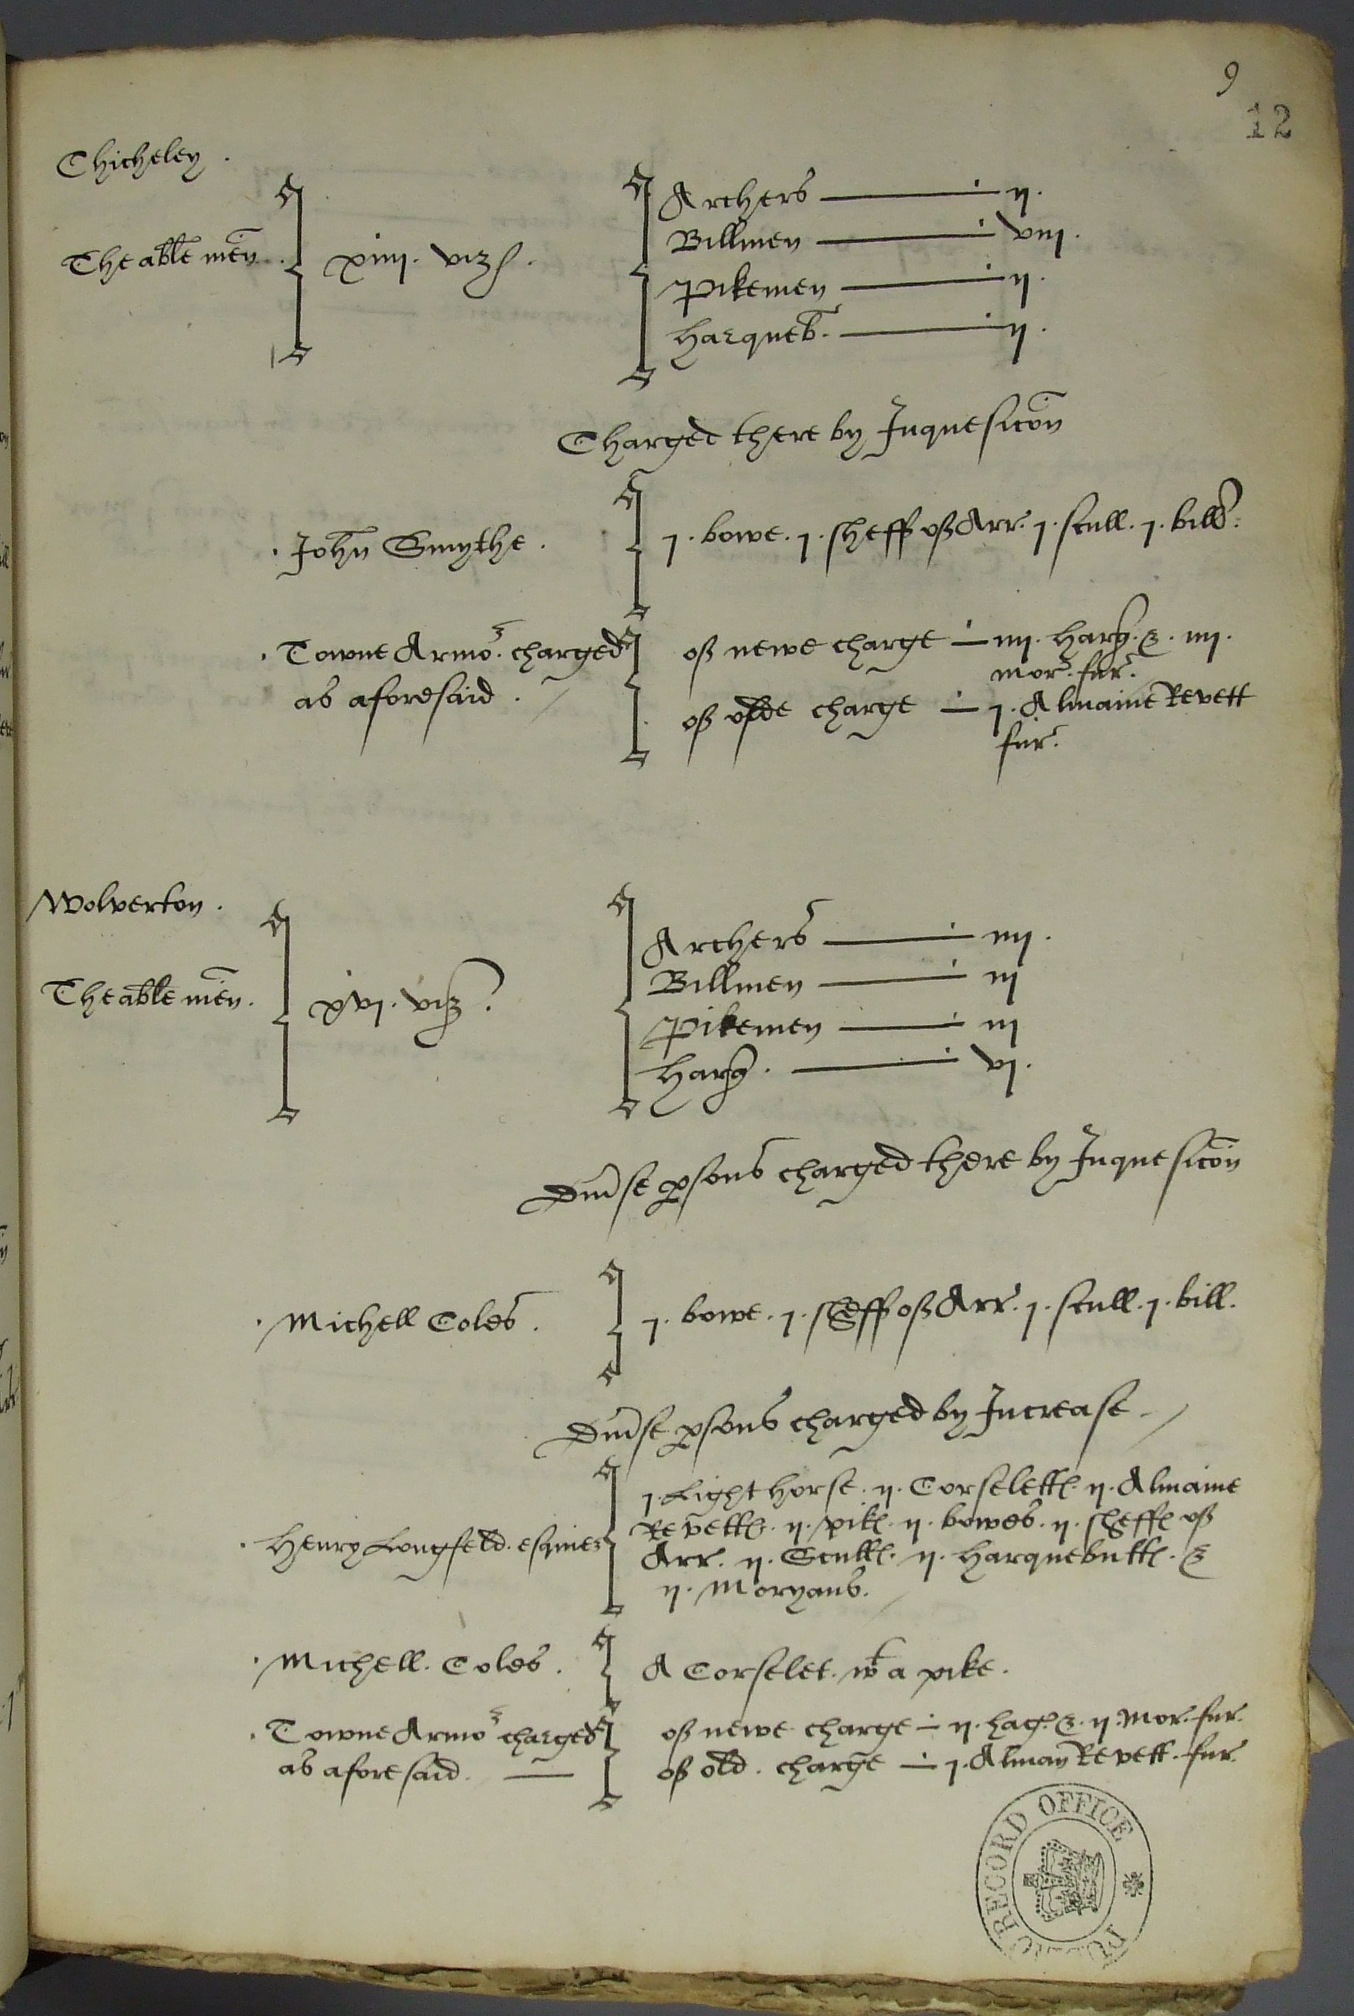 9
12
Chicheley.
The able men. xiiij. vizt.
Archers — ij.
Billmen — viij.
Pikemen — ij.
Harqueb. — ij.
Charged there by Inquesicon
John Smythe. j. bowe. j. sheff of Arr. j. scull. j. bill.
Towne Armor. charged of newe charge — iiij. harq. & . iiij.
mor. fur.
as aforesaid. of olde charge — j. Almaine Revett
fur.
Wolverton.
The able men. xvj. viz.
Archers — iiij.
Billmen — iij
Pikemen — iij
Harq. — vj.
Diuse psons charged there by Inquesicon
Michell Coles. j. bowe. j. sheff of Arr. j. scull. j. bill.
Diuse psons charged by Increase
Henry Longfeld. esquier j. Light horse. ij. Corselette. ij. Almaine
Revette. ij. pike. ij. bowes. ij. sheffe of
Arr. ij. Sculle. ij. harquebutte. &
ij. Moryans.
Michell. Coles. A Corselet. wt a pike.
Towne Armor charged of newe charge — ij. hag. & . ij. Mor. fur.
as aforesaid. — of old. charge — j. Alman Revett. fur.
PUBLIC RECORD OFFICE